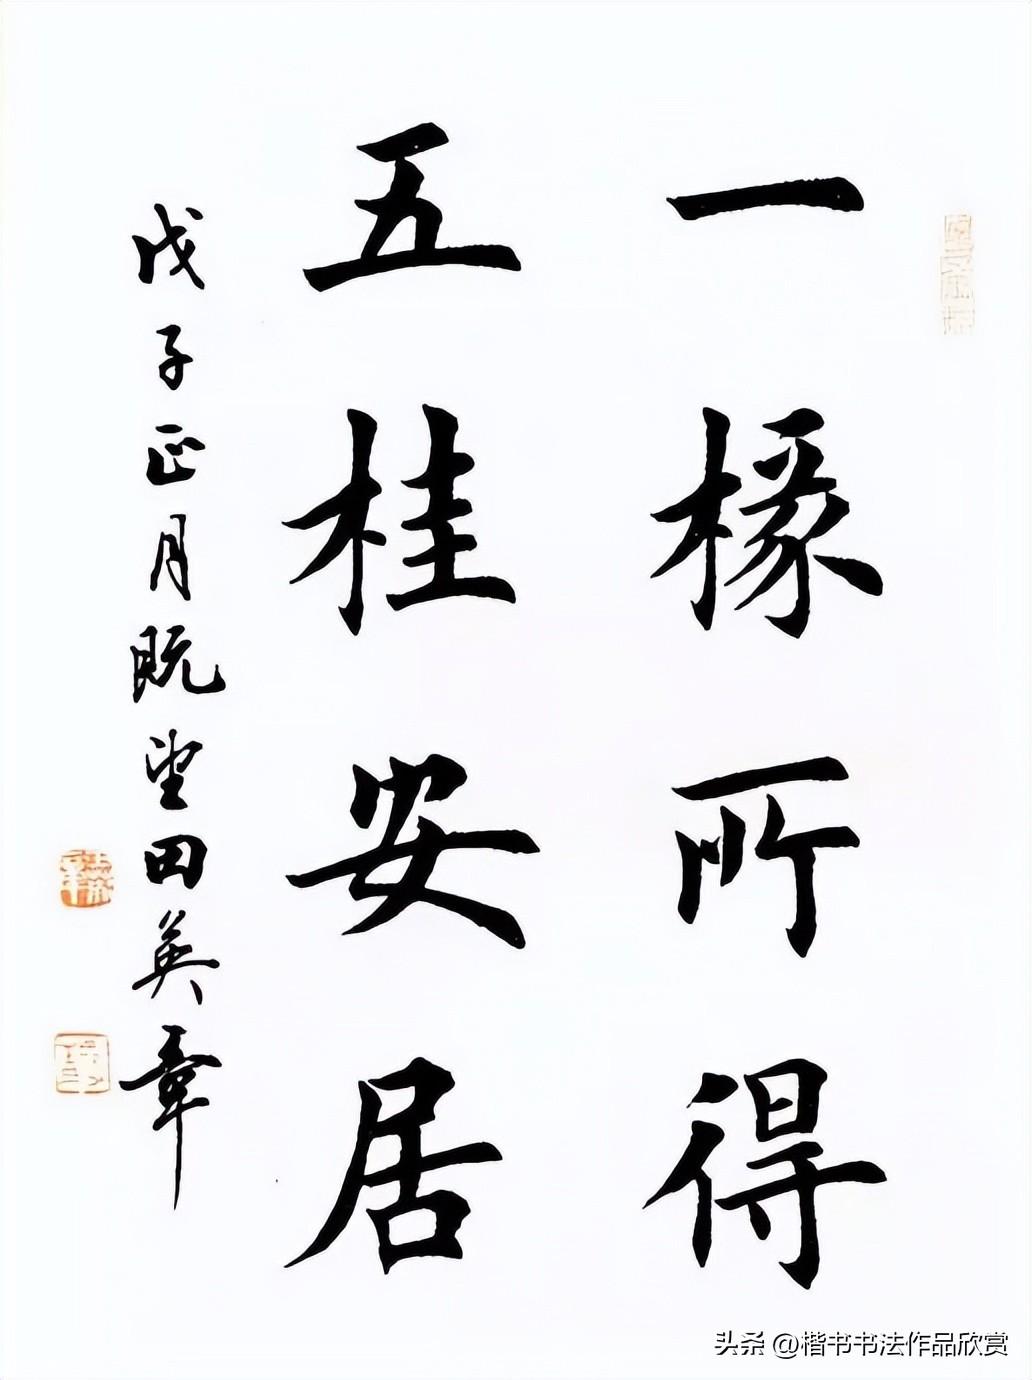 一椽所得
五桂安居
戊子正月既望田英章
头条 @楷书书法作品欣赏